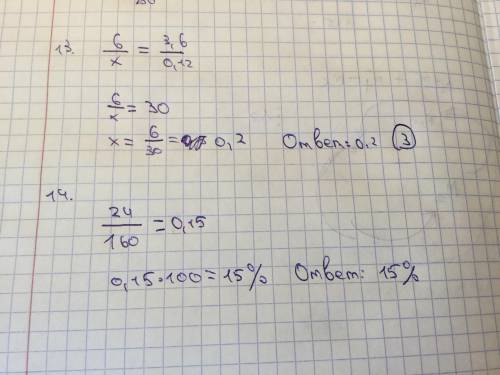 13. 6/x = 3,6/0,12
6/x = 30
x = 6/30 = 0,2 Ответ: 0,2 3
14.
24/160 = 0,15
0,15·100=15% Ответ: 15%